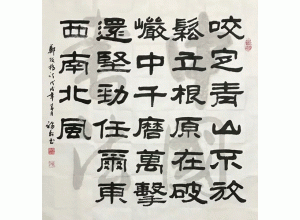 咬定青山不放
鬆立根原在破
巖中千磨萬擊
還堅勁任爾東
西南北風
鄭板橋詩戊戌年
中國
書法